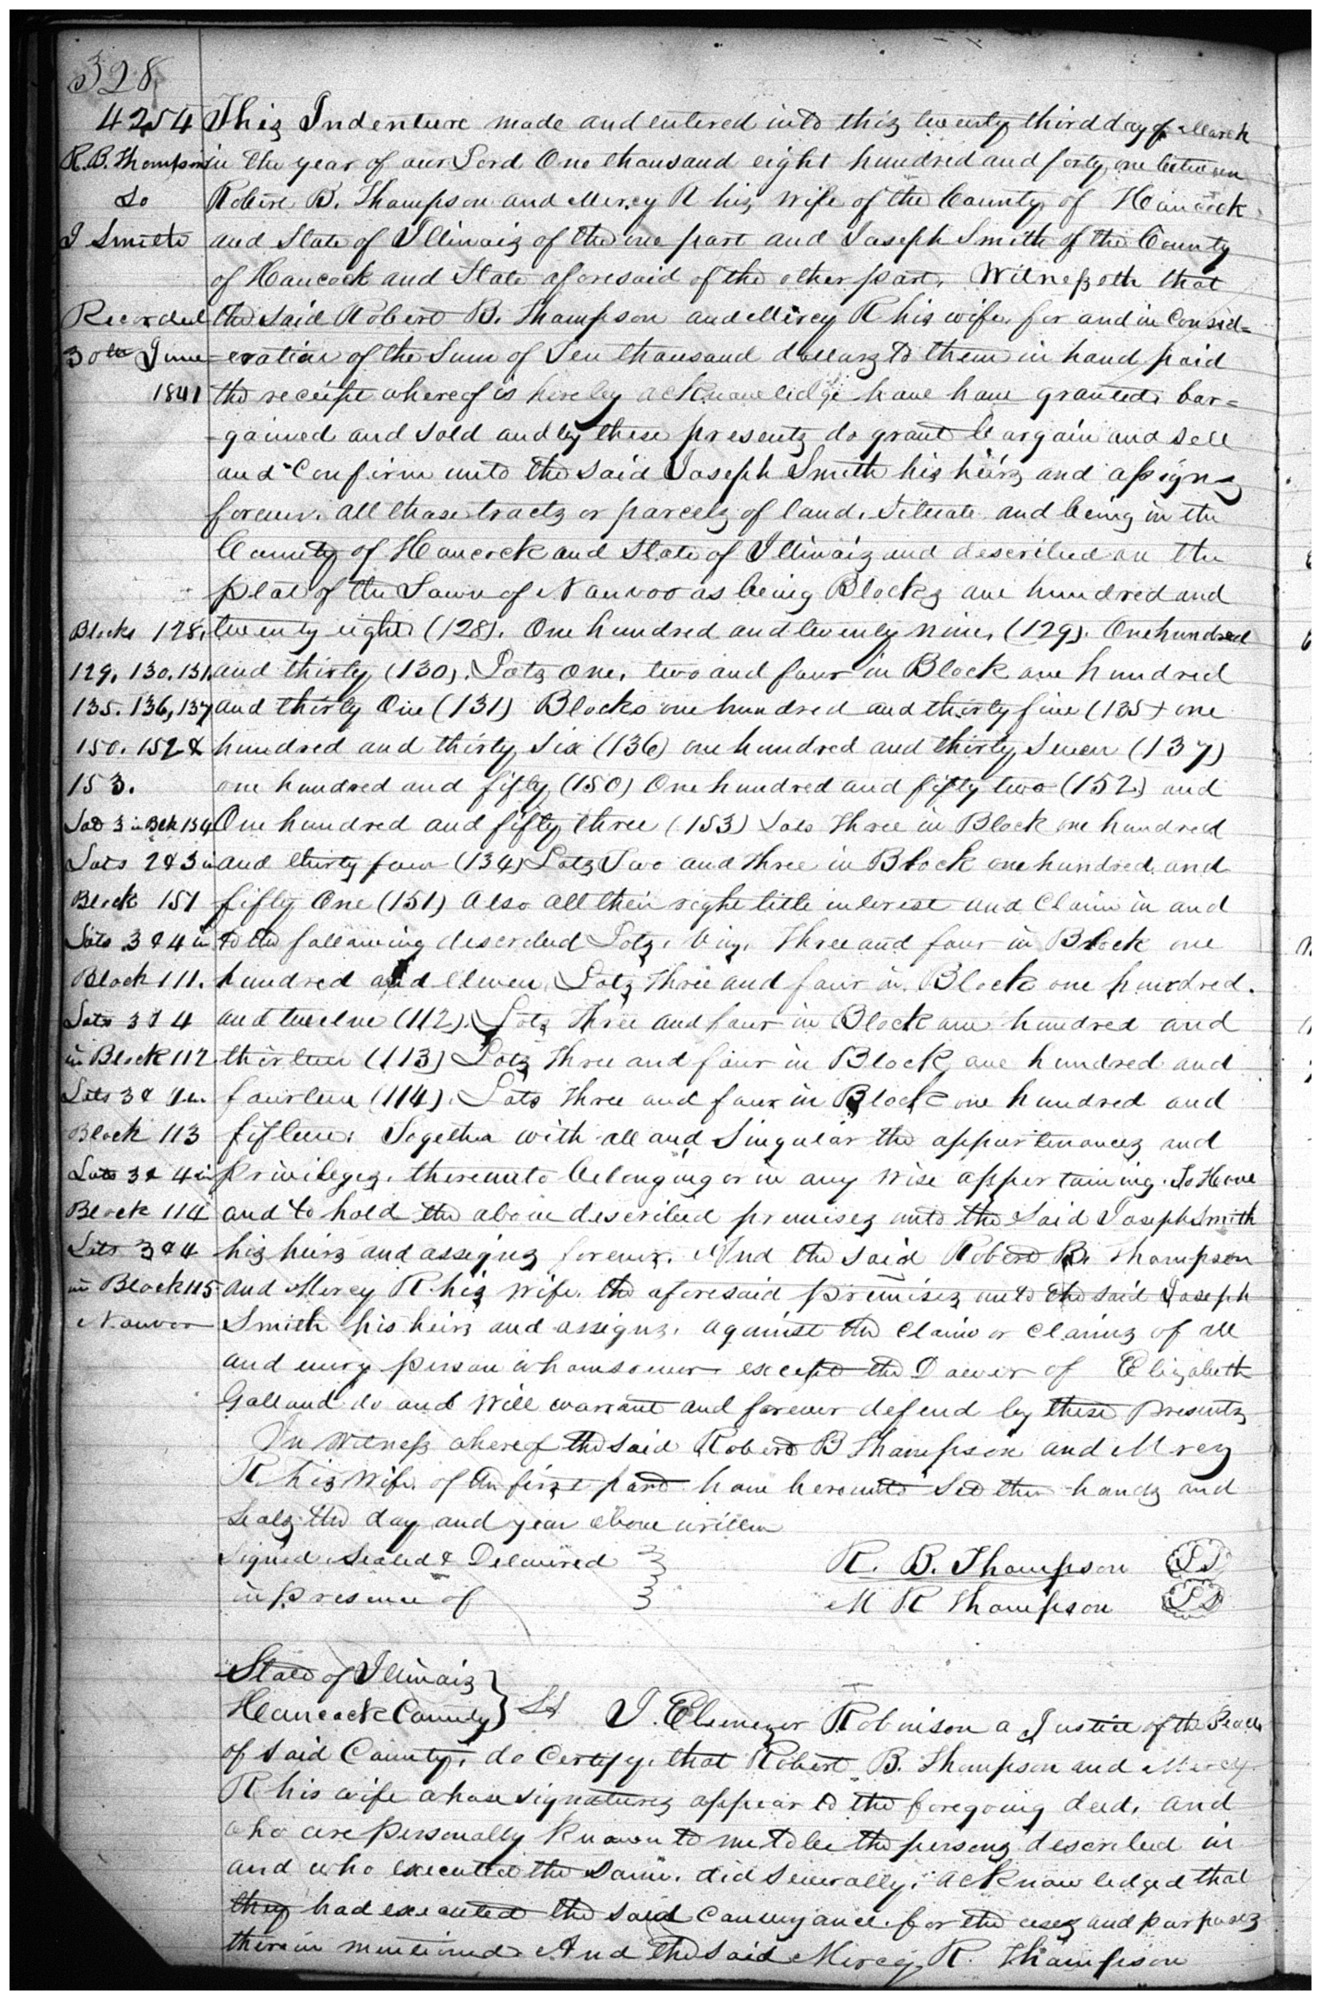 328
4254
R. B. Thompson
to
J Smith
Recorded
30th June
1841
Blocks 128,
129, 130, 131,
135. 136, 137
150. 152 &
153.
Lot 3 in Bck 134
Lots 2 & 3 in
Block 151
Lots 3 & 4 in
Block 111.
Lots 3 & 4
in Block 112
Lots 3 & 4 in
Block 113
Lots 3 & 4 in
Block 114
Lots 3 & 4
in Block 115
Nauvoo
This Indenture made and entered into this twenty third day of March
in the year of our Lord One thousand eight hundred and forty one between
Robert B. Thompson and Mercy R his wife of the County of Hancock
and State of Illinois of the one part and Joseph Smith of the County
of Hancock and State aforesaid of the other part, Witnesseth that
the said Robert B. Thompson and Mercy R his wife, for and in Consid=
=eration of the Sum of Ten thousand dollars to them in hand paid
the receipt whereof is hereby acknowledge have have granted, bar=
=gained and sold and by these presents do grant bargain and sell
and Confirm unto the said Joseph Smith his heirs and assigns
forever. all those tracts or parcels of land, Situate and being in the
County of Hancock and State of Illinois and described on the
plat of the Town of Nauvoo as being Blocks one hundred and
twenty eight (128). One hundred and twenty nine, (129). One hundred
and thirty (130). Lots One, two and four in Block one hundred
and thirty One (131) Blocks one hundred and thirty five (135) one
hundred and thirty Six (136) one hundred and thirty Seven (137)
one hundred and fifty (150) One hundred and fifty two (152) and
One hundred and fifty three (153) Lots three in Block one hundred
and thirty four (134) Lots Two and three in Block one hundred and
fifty One (151) Also all their right title interest and Claim in and
to the following described Lots, Viz, three and four in Block one
hundred and Eleven, Lots three and four in Block one hundred.
and twelve (112). Lots three and four in Block one hundred and
thirteen (113) Lots three and four in Block one hundred and
fourteen (114). Lots three and four in Block one hundred and
fifteen. Together with all and Singular the appurtenances and
privileges, thereunto belonging or in any wise appertaining. To Have
and to hold the above described premises unto the Said Joseph Smith
his heirs and assigns forever. And the said Robert B. Thompson
and Mercy R his wife, the aforesaid premises unto the said Joseph
Smith his heirs and assigns, against the claim or claims of all
and every person whomsoever except the Dower of Elizabeth
Galland do and will warrant and forever defend by these presents
In Witness whereof the said Robert B Thompson and Mrcy
R his wife, of the first part have hereunto Set their hands and
seals the day and year above written
Signed Sealed & Delivered
in presence of
R. B. Thompson LS
M R Thompson LS
State of Illinois
Hancock County } Ss I. Ebenezer Robinson a Justice of the Peace
of said County, do Certify, that Robert B. Thompson and Mercy
R his wife whose signatures appear to the foregoing deed, and
who are personally known to me to be the persons described in
and who executed the same, did severally, acknowledged that
they had executed the said conveyance for the uses and purposes
therein mentioned And the said Mercy R. Thompson